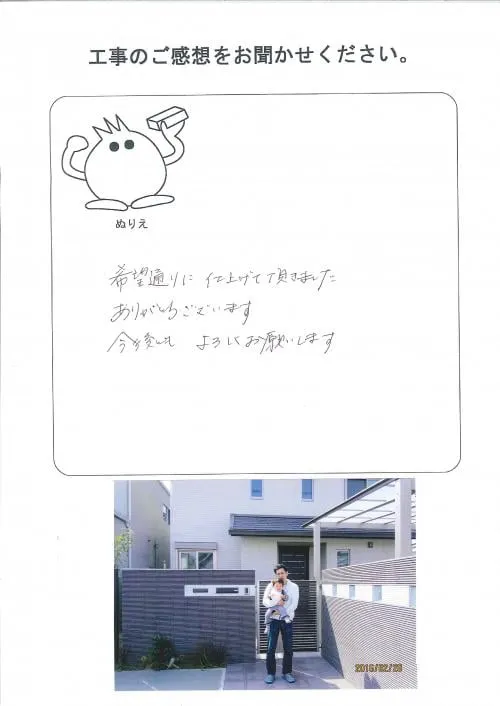 工事のご感想をお聞かせください。
ぬりえ
希望通りに 仕上げて頂きました
ありがとうございます
今後とも よろしくお願いします
2016/02/28